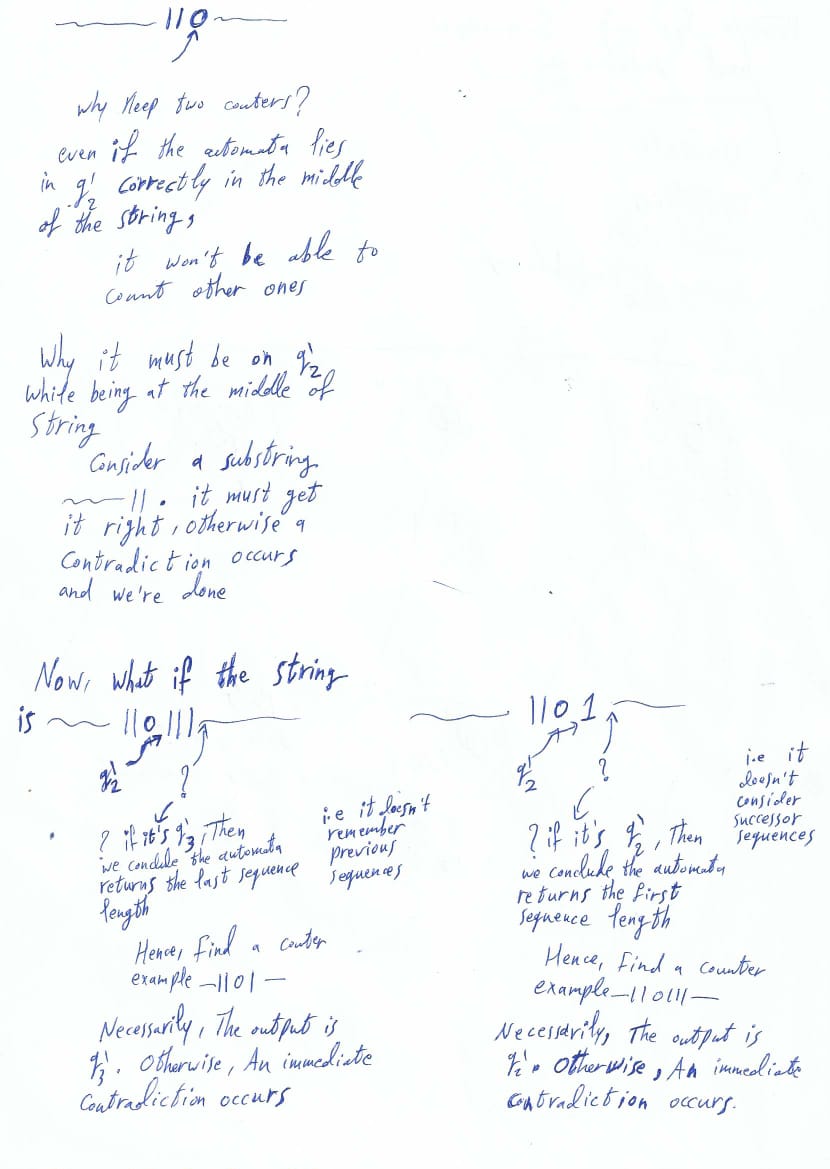 110
why keep two couters?
even if the automata lies
in q'2 correctly in the middle
of the string,
it won't be able to
count other ones
Why it must be on q'2
while being at the middle of
string
Consider a substring
11. it must get
it right, otherwise a
contradiction occurs
and we're done
Now, what if the string
is 110111
q'2 ?
? if it's q'3, Then
we conclude the automata
returns the last sequence
length
i.e it doesn't
remember
previous
sequences
Hence, find a couter
example —1101—
Necessarily, The output is
q'3. Otherwise, An immediate
Contradiction occurs
1101
q'2 ?
? if it's q'2, Then
we conclude the automata
returns the first
sequence length
i.e it
doesn't
consider
successor
sequences
Hence, Find a counter
example —110111—
Necessarily, The output is
q'2. Otherwise, An immediate
contradiction occurs.